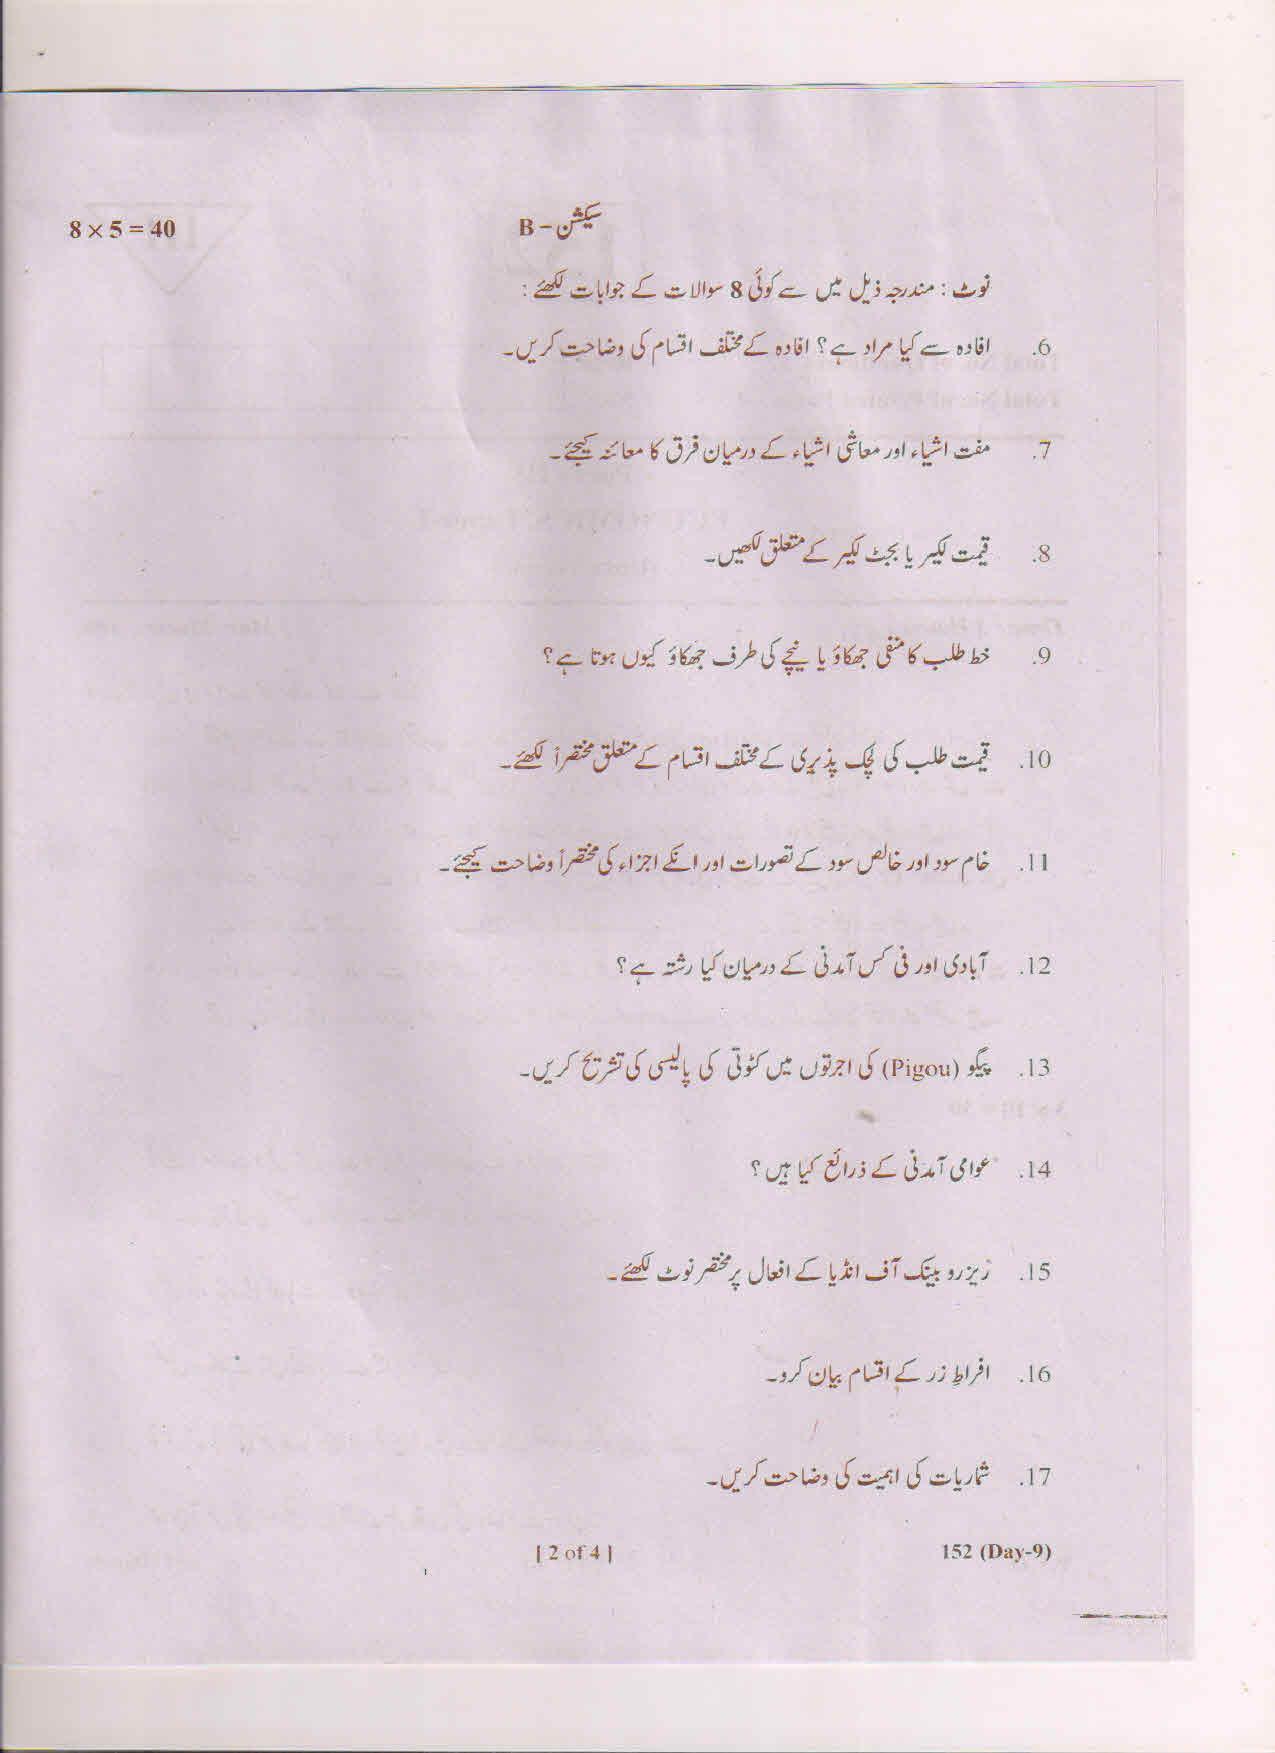 سیکشن – B
8 × 5 = 40
نوٹ : مندرجہ ذیل میں سے کوئی 8 سوالات کے جوابات لکھئے :
6. افادہ سے کیا مراد ہے؟ افادہ کے مختلف اقسام کی وضاحت کریں۔
7. مفت اشیاء اور معاشی اشیاء کے درمیان فرق کا معائنہ کیجئے۔
8. قیمت لکیر یا بجٹ لکیر کے متعلق لکھیں۔
9. خط طلب کا منفی جھکاؤ یا نیچے کی طرف جھکاؤ کیوں ہوتا ہے؟
10. قیمت طلب کی لچک پذیری کے مختلف اقسام کے متعلق مختصراً لکھئے۔
11. خام سود اور خالص سود کے تصورات اور انکے اجزاء کی مختصراً وضاحت کیجئے۔
12. آبادی اور فی کس آمدنی کے درمیان کیا رشتہ ہے؟
13. پیگو (Pigou) کی اجرتوں میں کٹوتی کی پالیسی کی تشریح کریں۔
14. عوامی آمدنی کے ذرائع کیا ہیں؟
15. ریزرو بینک آف انڈیا کے افعال پر مختصر نوٹ لکھئے۔
16. افراطِ زر کے اقسام بیان کرو۔
17. شماریات کی اہمیت کی وضاحت کریں۔
152 (Day-9)
[ 2 of 4 ]